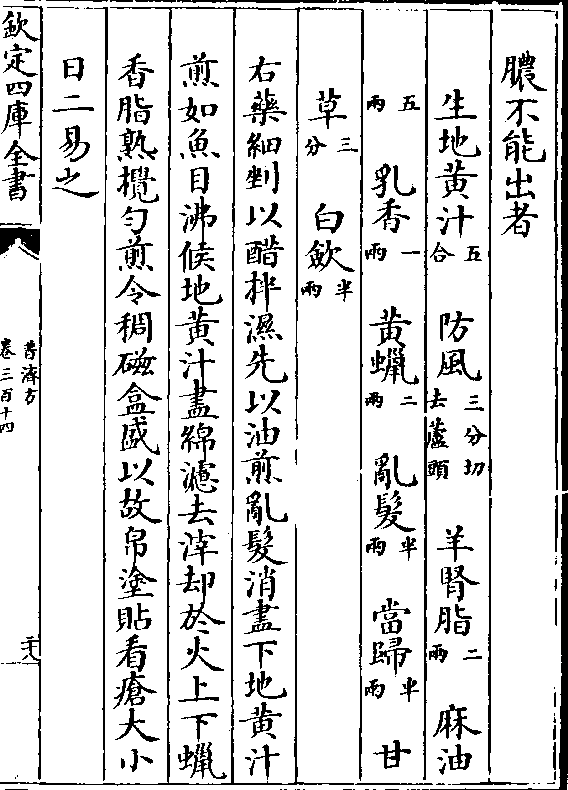 膿不能出者
生地黄汁五合 防風三分切去蘆頭 羊腎脂二兩 麻油
五兩 乳香一兩 黄蠟二兩 亂髮半兩 當歸半兩 甘
草三分 白歛半兩
右藥細剉以醋拌濕先以油煎亂髮消盡下地黄汁
煎如魚目沸候地黄汁盡綿濾去滓却於火上下蠟
香脂熟攪勻煎令稠磁盒盛以故帛塗貼看瘡大小
日二易之
欽定四庫全書
普濟方
卷三百十四